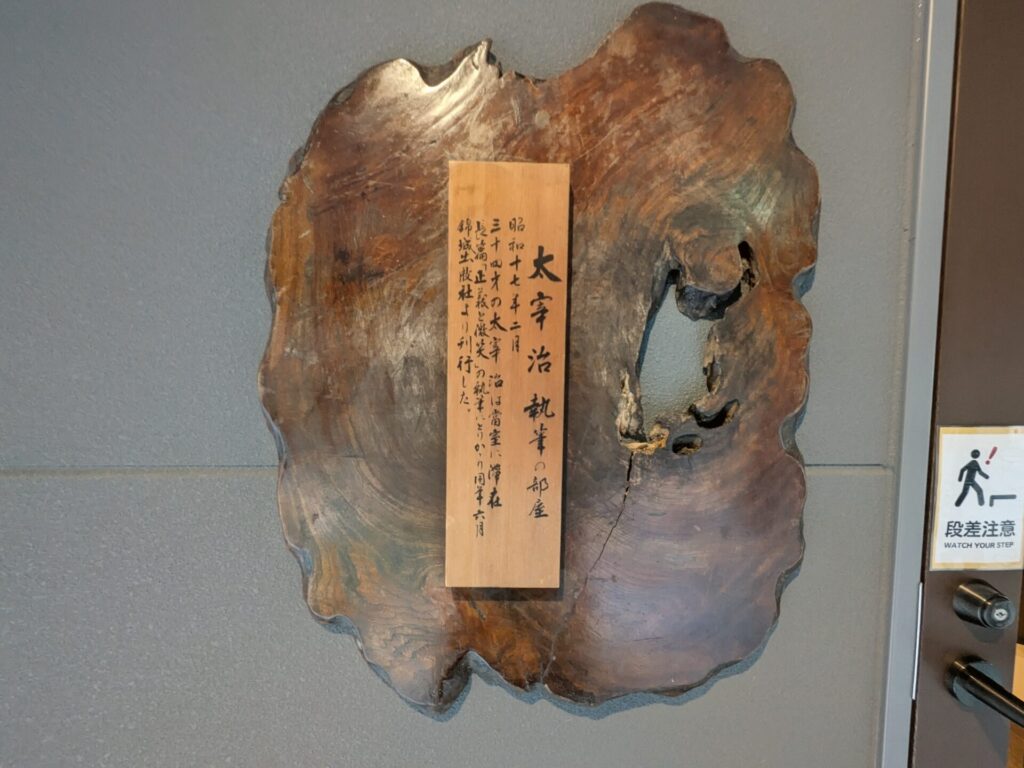 太宰治 執筆の部屋
昭和十七年二月
三十四才の太宰治は当室に滞在
長篇『正義と微笑』の執筆にとりかゝり同年六月
錦城出版社より刊行した。
段差注意
WATCH YOUR STEP